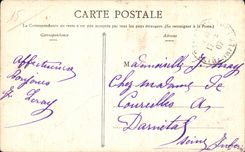 CARTE POSTALE
La Correspondance au recto n'est pas acceptée par tous les pays étrangers (Se renseigner à la Poste)
Correspondance
Adresse
Affectueux
Bonjours
J. Leray
Mademoiselle J. Leray
Chez madame de
Courcelles à
Darnétal
Seine Infre